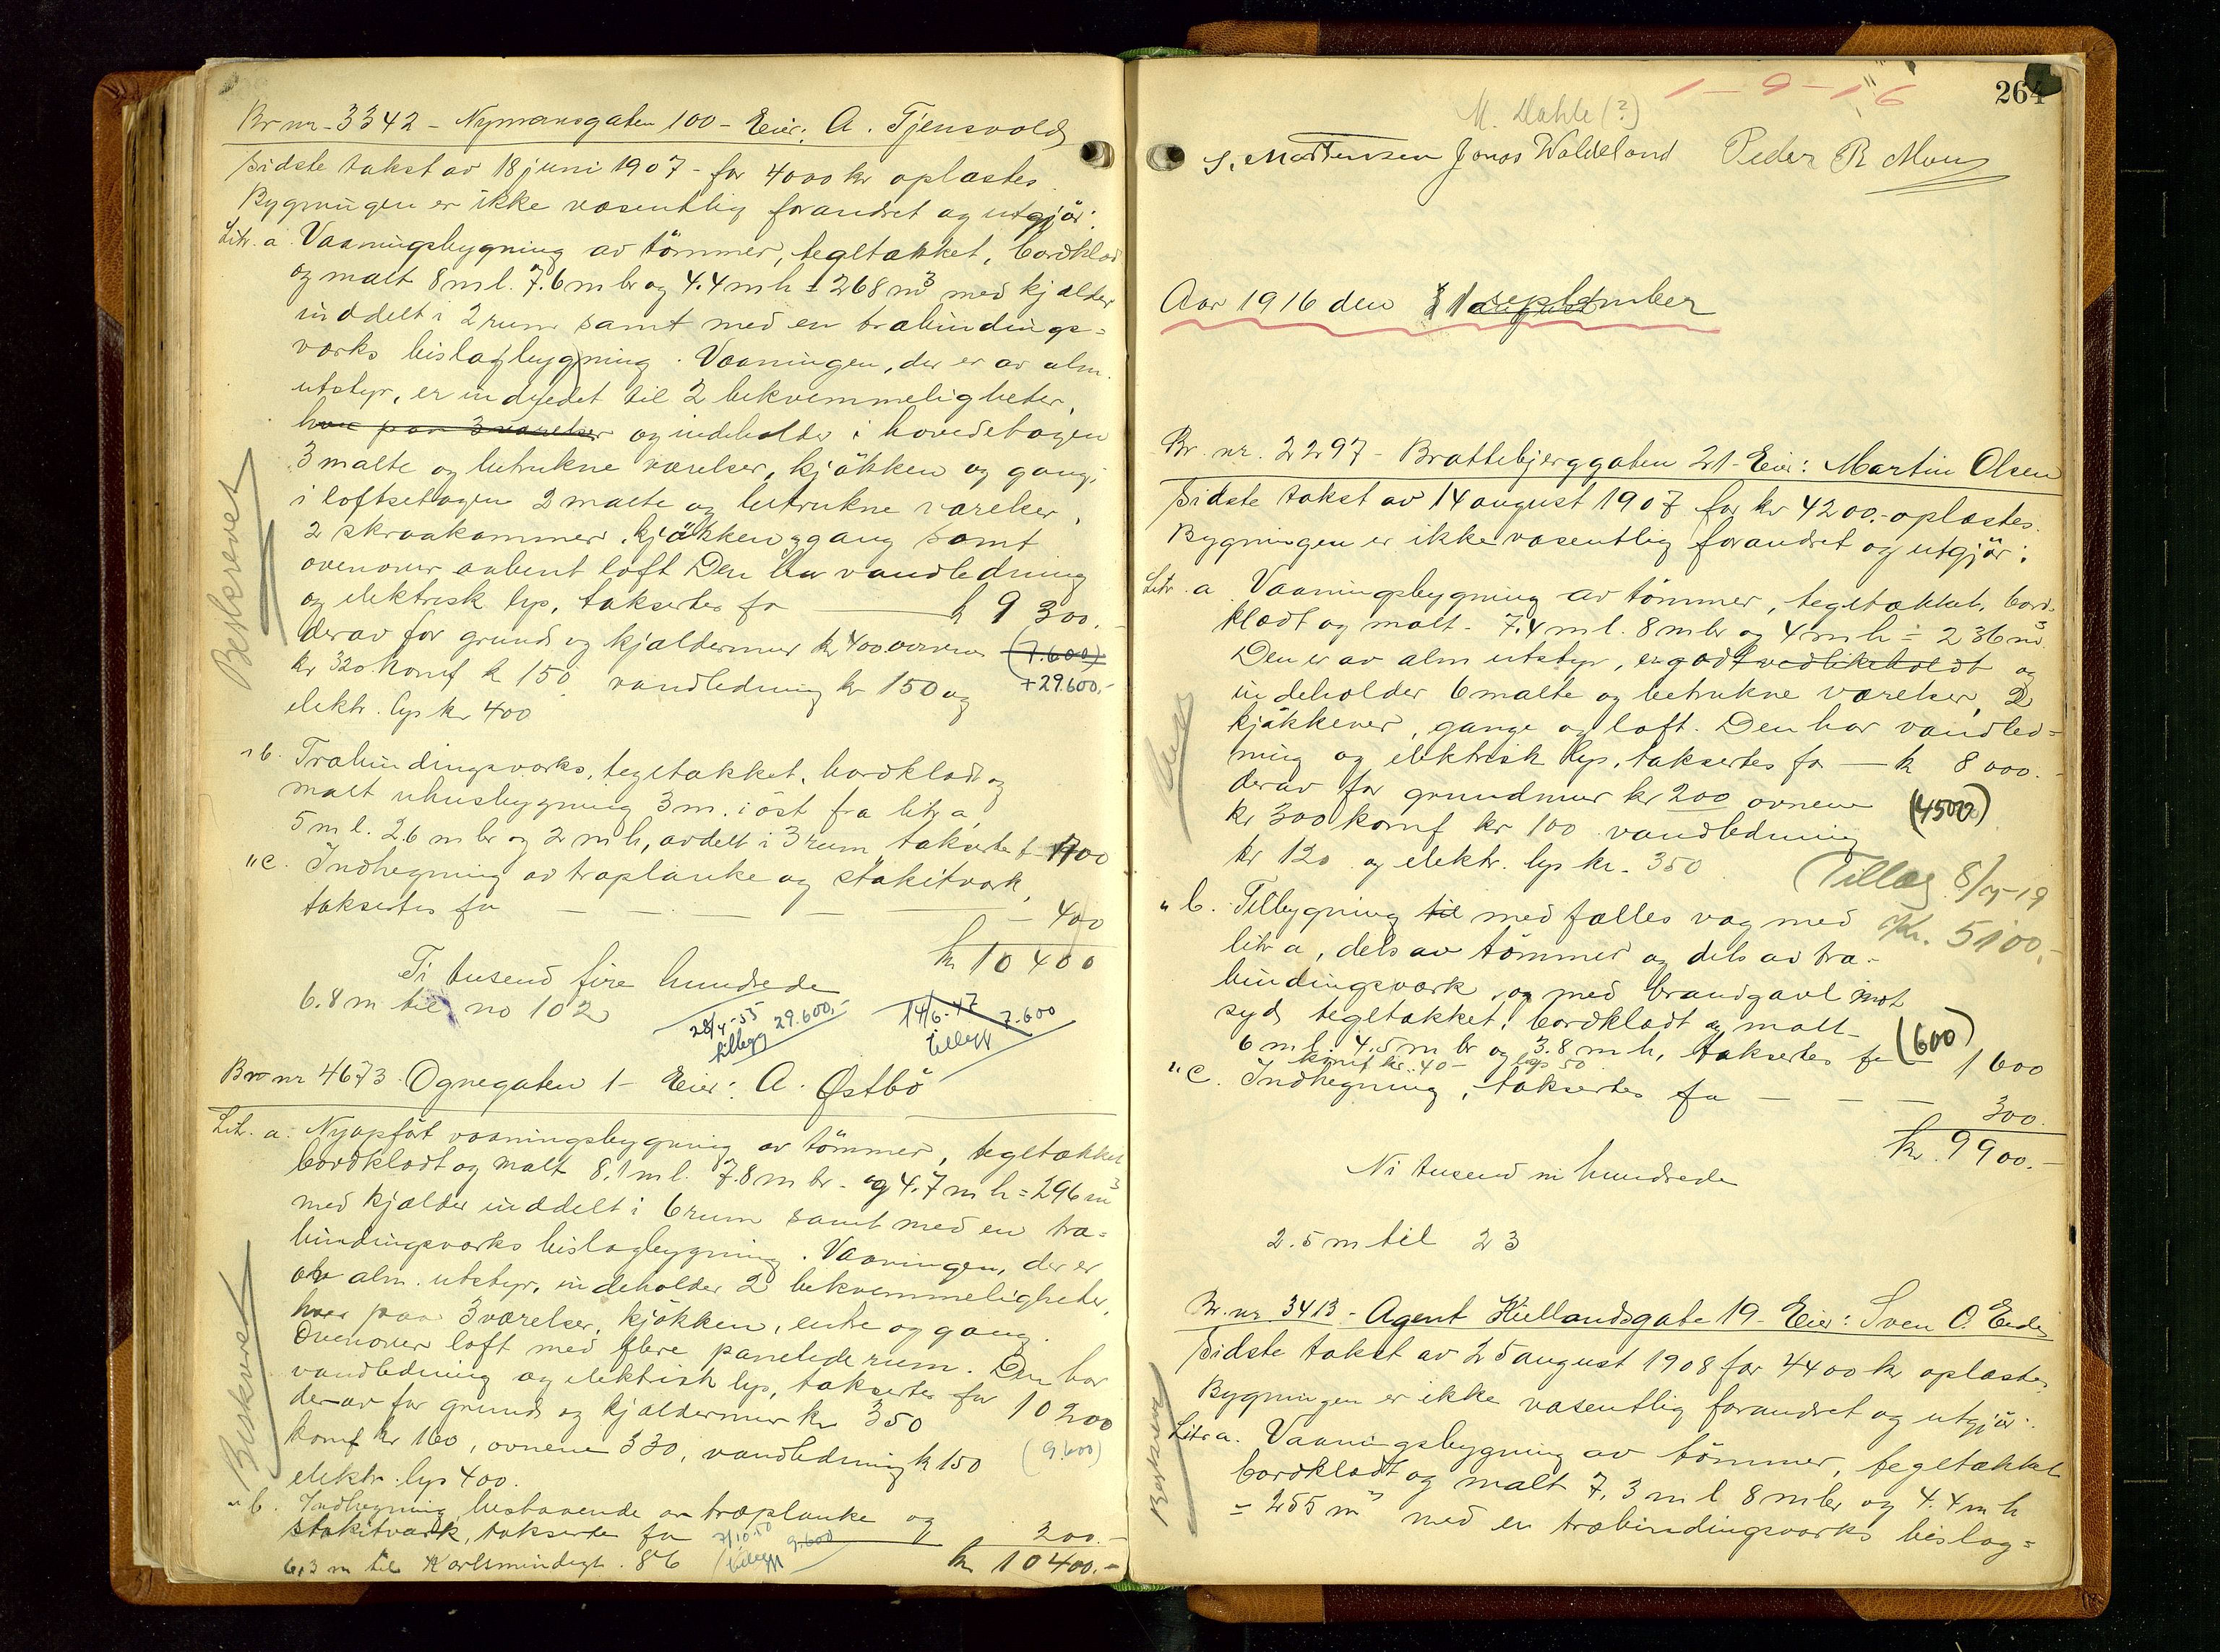 Br nr - 3342 - Nymansgaten 100 - Eier: A. Tjensvold
Sidste takst av 18 juni 1907 - for 4000 kr oplæstes.
Bygningen er ikke væsentlig forandret og utgjör:
Litr. a. Vaaningsbygning av tömmer, tegltækket, bordklæd
og malt 8 m l. 7.6 m br og 4.4 m h = 268 m3 med kjælder
inddelt i 2 rum samt med en træbindings=
verks bislagbygning. Vaaningen, der er av alm.
utstyr, er indredet til 2 bekvemmeligheter,
hver paa 3 værelser og indeholder i hovedetagen
3 malte og betrukne værelser, kjökken og gang;
i loftsetagen 2 malte og betrukne værelser,
2 skraakammer, kjökken og gang samt
ovenover aabent loft Den har vandledning
og elektrisk lys, takseres for k 9 300.-
derav for grund og kjældermur kr 400. ovnene (7.600)
kr 320 komf k 150 vandledning kr 150 og + 29.600,-
elektr. lys kr 400
Beskrevet
" b. Træbindingsverks, tegltækket, bordklædt og
malt uhusbygning 3 m. i öst fra litr a,
5 m l. 2.6 m br og 2 m h, avdelt i 3 rum takseres f - 700
" c. Indhegning av træplanke og stakitverk,
takseres for - 400
kr 10 400
Ti tusend fire hundrede
6.8 m til no 102
28/4-55 29.600,-
tillegg
14/6-47 7.600
tillegg
Br nr 4673. Ognegaten 1 - Eier: A. Østbö
Litr. a. Nyopfört vaaningsbygning av tömmer, tegltækket
bordklædt og malt 8,1 m l. 7.8 m br - og 4.7 m h = 296 m3
med kjælder inddelt i 6 rum samt med en træ=
bindingsverks bislagbygning. Vaaningen, der er
av alm. utstyr, indeholder 2 bekvemmeligheter,
hver paa 3 værelser, kjökken, entre og gang.
Ovenover loft med flere panelede rum. Den har
vandledning og elektrisk lys, takseres for 10 200
derav for grund og kjældermur kr 350
komf kr 160, ovnene 330, vandledning k 150 (9.600)
elektr. lys 400.
Beskrevet
" b. Indhegning bestaaende av træplanke og
stakitverk, takseres for 200.-
7/10.50 9.600
tillegg
6,3 m til Karlsmindegt. 86 kr 10400.-
1 - 9 - 16
264
M. Dahle (?)
S. Mortensen Jonas Waldeland Peder R. Moe
Aar 1916 den 1 september
Br. nr. 2297 - Brattebjerggaten 21 - Eier: Martin Olsen
Sidste takst av 14 august 1907 for kr 4200.- oplæstes.
Bygningen er ikke væsentlig forandret og utgjör:
Litr. a Vaaningsbygning av tömmer, tegltækket, bord-
klædt og malt - 7.4 m l. 8 m br og 4 m h = 236 m3.
Den er av alm utstyr, er godt vedlikeholdt og
indeholder 6 malte og betrukne værelser, 2
kjökkener, gange og loft. Den har vandled=
ning og elektrisk lys, takseres for - k 8 000.-
derav for grundmur kr 200 ovnene (4500)
kr 300 komf kr 100 vandledning
kr 120 og elektr. lys kr. 350
Tillæg 8/9-19
Kr. 5100,-
" b. Tilbygning til med fælles væg med
litr a, dels av tömmer og dels av træ-
bindingsverk og med brandgavl mot
syd, tegltækket, bordklædt og malt -
6 m l. 4.5 m br og 3.8 m h, takseres for (600) 1 600
komf kr. 40 - lys 50
" c. Indhegning, takseres for - 300.
kr. 9900.-
Ni tusend ni hundrede
2.5 m til 23
Br. nr 3413 - Agent Kiellandsgate 19 - Eier: Sven O. Eide
Sidste takst av 25 august 1908 for 4400 kr oplæstes.
Bygningen er ikke væsentlig forandret og utgjör:
Litr a. Vaaningsbygning av tömmer, tegltækket
bordklædt og malt 7,3 m l 8 m br og 4.4 m h
= 255 m3 med en træbindingsverks bislag=